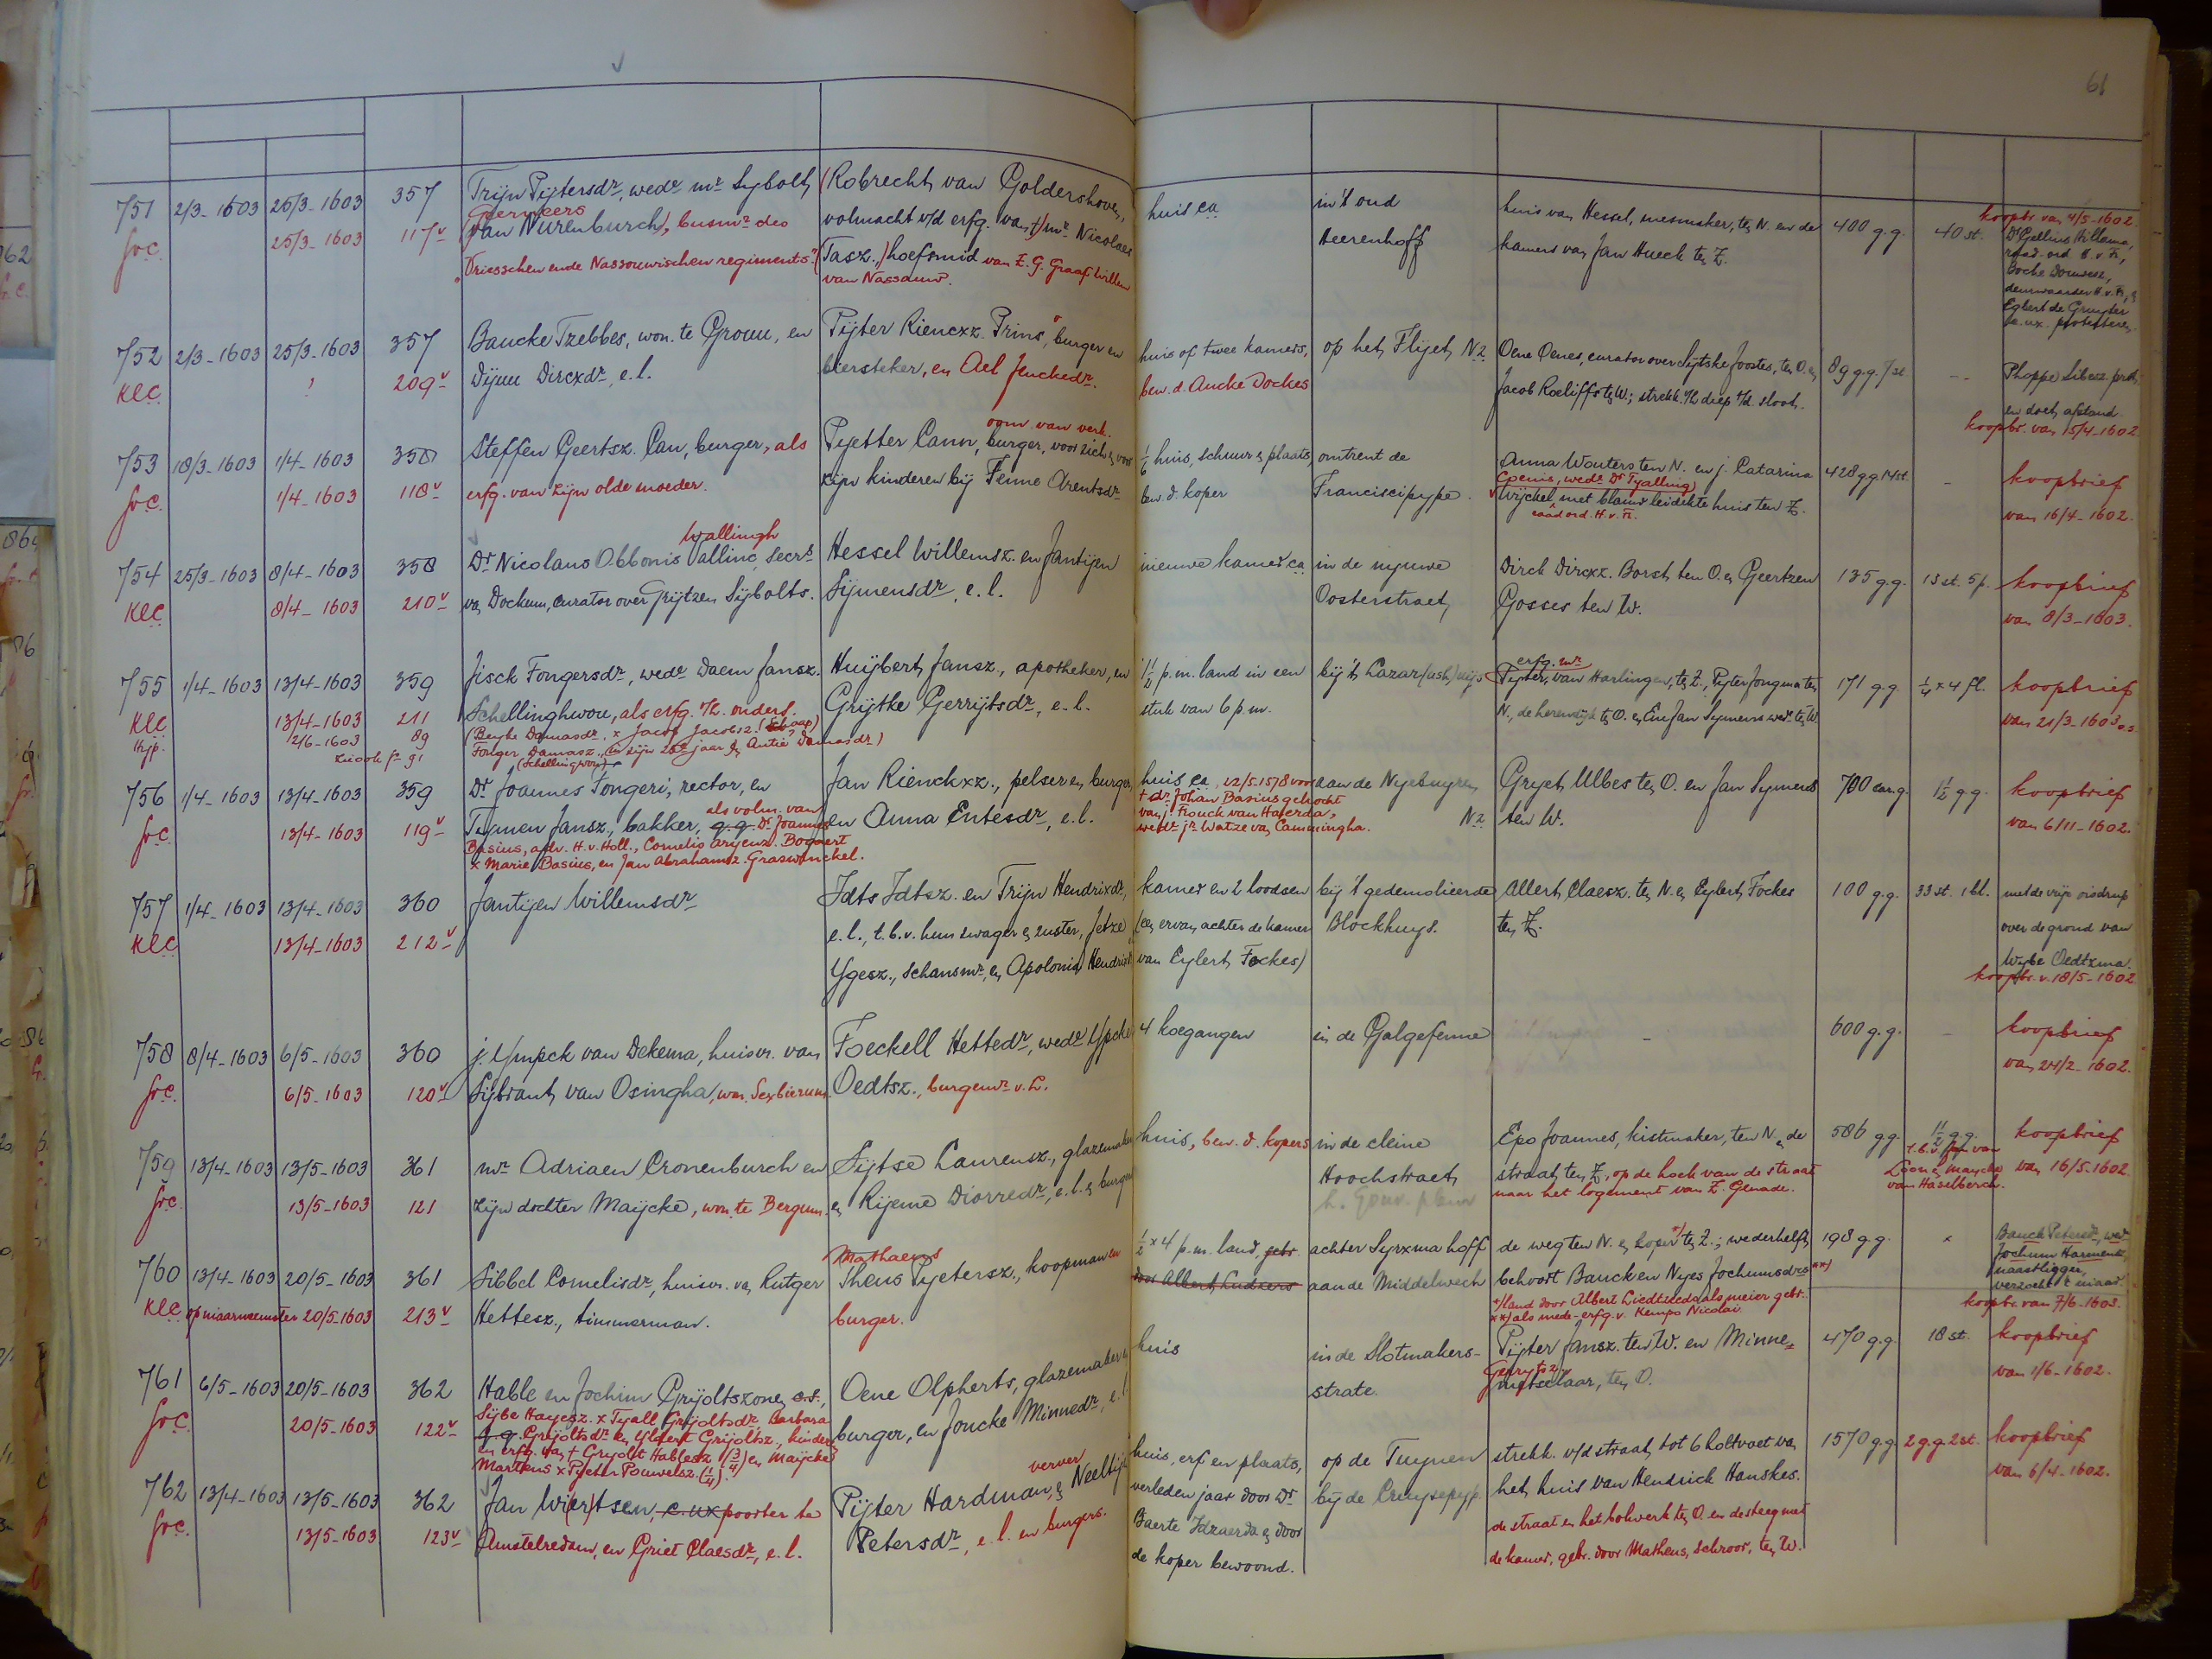 61
751 2/3-1603 25/3-1603 357 Trijn Pijtersdr, wedr mr Sybolt (Robrecht van Goldershoven, huis ca in 't oud huis van Hessel, mesmaker, ten N. en de 400 g.g. 40 st. koopbr van 4/5-1602.
soc. 25/3-1603 117v van Nurenburch), busmr des volmacht v/d erfg. van †) mr Nicolaes Heerenhoff kamers van Jan Hueck ten Z. Dr Gellius Hillama,
"Vriesschen ende Nassouwischen regiments" (Tasz.,) hoefsmid van Z. G. Graaf Willem raad-ord. H.v.Fr,
van Nassauw. Bocke Douwesz,
deurwaarder H.v.Fr, &
Egbert de Gruyter
752 2/3-1603 25/3-1603 357 Baucke Tzebbes, won. te Grouu, en Pijter Riencxz. Prins, burger en huis of twee kamers, op het Flijet, Nz. Oene Oenes, curator over Sijtske Joostes, ten O. en 89 g.g. 7 st --
klc ? 209v Dijuu Dircxdr, e.l. biersteker, en Ael Jenckedr. bew. d. Aucke Dockes Jacob Roeliffs ten W.; strekk. v/h diep t/d sloot.
en doet afstand
koopbr. van 15/4-1602
753 18/3-1603 1/4-1603 358 Steffen Geertsz. Can, burger, als Pyetter Cann, burger, voor zich en voor 1/6 huis, schuur & plaats, omtrent de Anna Wouters ten N. en j. Catarina 428 g.g. 14 st. - koopbrief
oom van verk.
soc. 1/4-1603 118v erfg. van zijn olde moeder. zijn kinderen bij Fenne Arentsdr bew. d. koper Franciscipype. Wijckel met blauw leidekte huis ten Z. van 16/4-1602.
raad ord. H.v.Fr.
754 25/3-1603 8/4-1603 358 Dr Nicolaus Obbonis Vallinc, Secrs Hessel Willemsz. en Jantijen nieuwe kamer ca in de nyuwe Dirck Dircxz. Borst, ten O. en Geertzen 135 g.g. 13 st. 5 p. koopbrief
Wallingh
klc 8/4-1603 210v van Dockum, curator over Grijtzen Sijbolts. Sijmensdr, e.l. Oosterstraet, Gosses ten W. van 8/3-1603.
755 1/4-1603 13/4-1603 359 Jisck Fongersdr, wedr Daem Jansz. Huijbert Jansz., apotheker, en 1½ p.m. land in een bij 't Lazar(ush)uijs Pijter, van Harlingen, ten Z., 171 g.g. ¼ x 4 fl. koopbrief
erfg. mr
klc 13/4-1603 211 Schellinghwou, als erfg. v/h. onders. Grijtke Gerrijtsdr, e.l. stuk van 6 p.m. van 21/3-1603
12/6-1603 89 (Beyke Damasdr. x Jacob Jacobsz. (Schaap)
zie ook f= 91 Fonger Damasz., in zijn 25e jaar & Antie Damasdr)
(Schellingwou)
756 1/4-1603 13/4-1603 359 Dr Joannes Fongeri, rector, en Jan Rienckxz., pelser en burger huis ca, 12/5.1578 voor aan de Nyebuyren Gryet Ulbes ten O. en Jan Symens 700 car.g. 1½ g.g. koopbrief
als volm. van † dr Johan Basius gekocht
soc. 13/4-1603 119v Tijmen Jansz., bakker, q.q. Dr Joannes en Anna Entesdr, e.l. van j. Frouck van Haerda, Nz ten W. van 6/11-1602.
Basius, adv. H.v.Holl., Cornelis Aryenz. Bogaert wedr jr Watze van Cammingha.
x Marie Basius, en Jan Abrahamsz. Graswinckel.
757 1/4-1603 13/4-1603 360 Jantijen Willemsdr Idts Idtsz. en Trijn Hendrixdr, kamer en 2 loodsen bij 't gedemolieerde Allert Claesz. ten N. en Eylert Fockes 100 g.g. 33 st. 1 bl. met de vrije oisdrup
klc 13/4-1603 212v e.l., t.b.v. hun zwager & zuster, Jetze (een ervan achter de kamer Blockhuys. ten Z. over de grond van
Ygesz., schansmr, en Apolonia Hendrix van Eylert Fockes) Wybe Oedtzma.
koopbr. v. 18/5-1602
758 8/4-1603 6/5-1603 360 j. Ympck van Dekema, huisvr. van Foeckell Hettedr, wedr Ypcke 4 koegangen in de Galgefenne - 600 g.g. - koopbrief
soc. 6/5-1603 120v Sijbrant van Osingha, won. Sexbierum. Oedtsz., burgemr v. L. van 24/2-1602.
759 13/4-1603 13/5-1603 361 mr Adriaen Cronenburch en Sijtse Laurensz., glazemaker huis, bew. d. kopers in de cleine Epo Joannes, kistmaker, ten N. en de 586 g.g. 1½ g.g. koopbrief
soc. 13/5-1603 121 zijn dochter Maijcke, won. te Bergum. en Rijeme Diorredr, e.l. & burgers Hoochstraet, straat, ten Z., op de hoek van de straat van 16/5-1602
naar het logement van Z. Genade. van Haselbersch.
760 13/4-1603 20/5-1603 361 Sibbel Cornelisdr, huisvr. van Rutger Theus Pyetersz., koopman en ½ x 4 p.m. land, gebr. achter Syrxma hoff de weg ten N. en koper *) ten Z.; wederhelft 198 g.g. x Bauck Petersdr, wedr
Mathaeus Jochum Harmens,
klc op maarmeenster 20/5-1603 213v Hettesz., timmerman. burger. door Albert Ludzers aan de Middelwech behoort Bauck en Nyes Jochumsdrs **) naastligger,
*) land door Albert Liedtzeeda als meier gebr. verzoekt 't niaar
**) als mede-erfg. v. Kempo Nicolai koopbr. van 7/6-1603.
761 6/5-1603 20/5-1603 362 Hable en Jochim Grijoltszonen c.s., Oene Olpherts, glazemaker & huis in de Slotmakers- Pijter Jansz. ten W. en Minne 470 g.g. 18 st. koopbrief
soc. 20/5-1603 122v Sijbe Hayesz. x Tyall Grijoltsdr, Barbara burger, en Joucke Minnedr, e.l. strate. metselaar, ten O. van 1/6-1602.
Gerrytsz.
q.q. Grijoltsdr en Ylaert Grijoltsz., kinder
en erfg. van † Gryolt Hablesz (¾) en Maijcke
Martens x Pyeter Pouwelsz. (¼).
762 13/4-1603 13/5-1603 362 Jan Wiertsen, e. ux poorter te Pijter Hardman, & Neeltije huis, erf en plaats, op de Tuynen strekk. v/d straat tot 6 holtvoet van 1570 g.g. 2 g.g. 2 st. koopbrief
verver
soc. 13/5-1603 123v Amstelredam, en Griet Claesdr, e.l. Petersdr, e.l. en burgers. verleden jaar door Dr bij de Cruysepijp. het huis van Hendrick Hanskes. van 6/4-1602.
Baerte Idzaerda & door de straat en het bolwerk ten O. en de steeg met
de koper bewoond. de kamer, gebr. door Matheus, schroor, ten W.